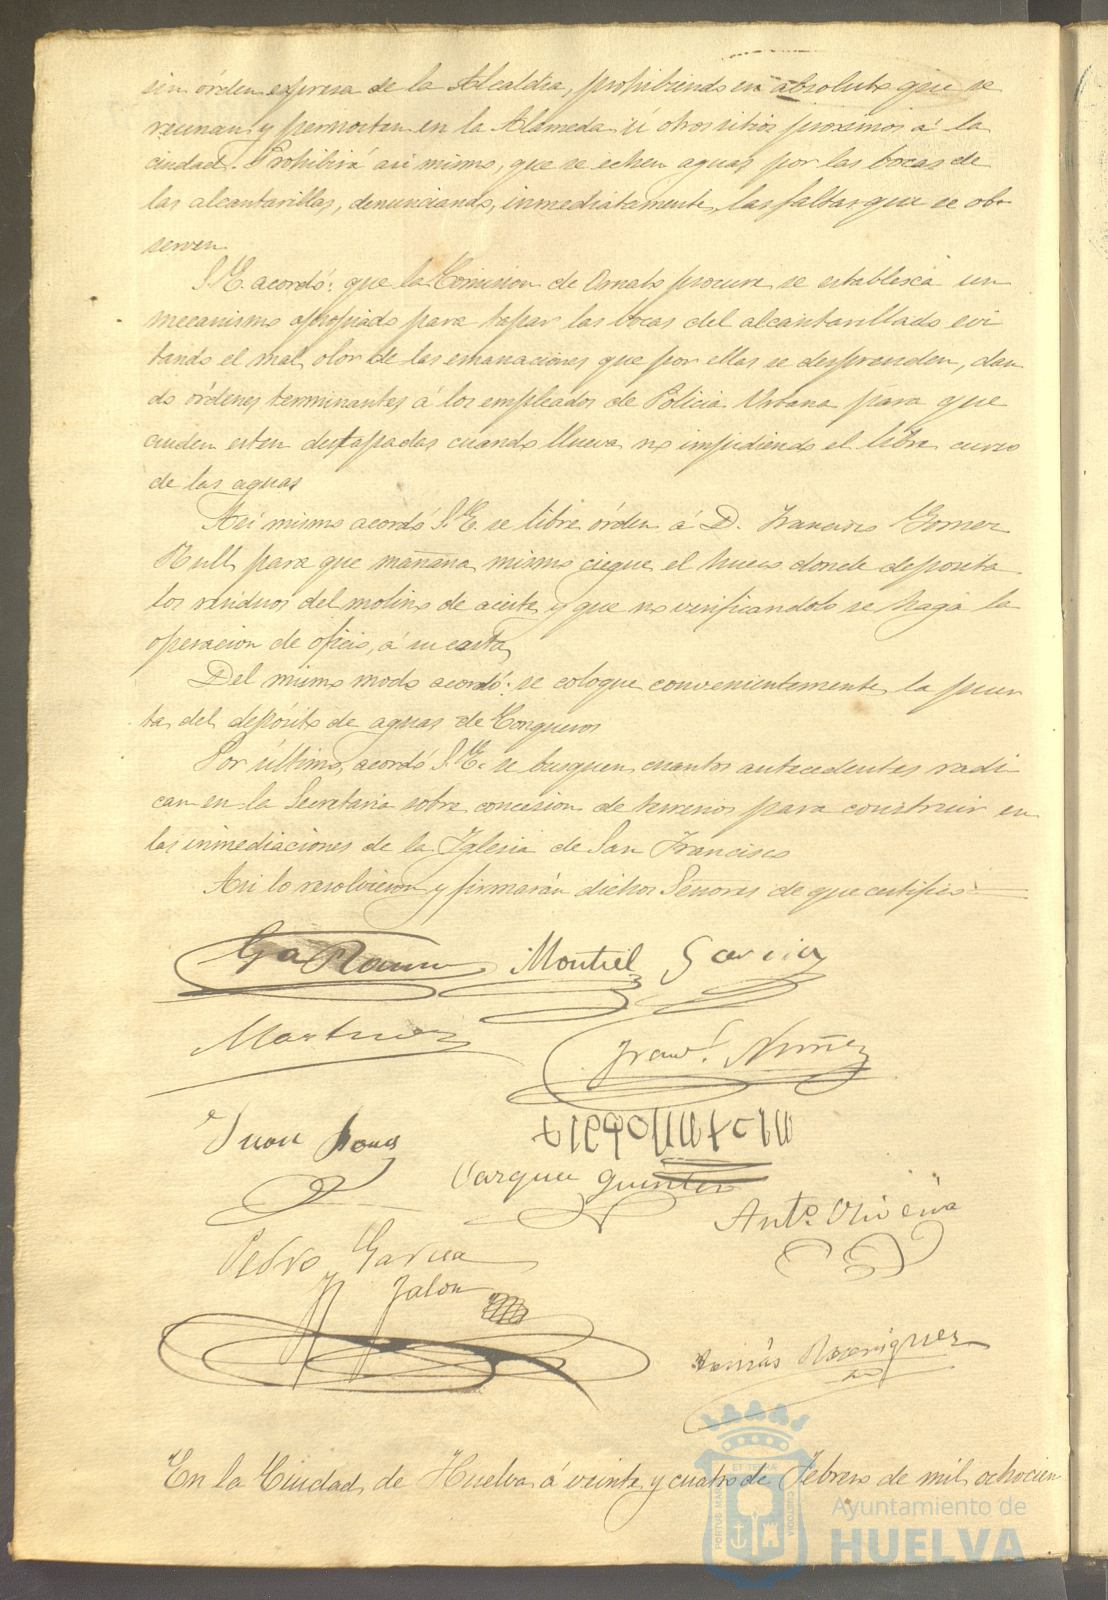 sin órden espresa de la Alcaldia, prohibiendo en absoluto que se
reunan y pernocten en la Alameda ú otros sitios procsimos á la
ciudad. Prohibirá asi mismo, que se echen aguas por las bocas de
las alcantarillas, denunciando, inmediatamente, las faltas que se ob-
serven
S. E. acordó: que la Comision de Ornato procure se establesca un
mecanismo apropiado para tapar las bocas del alcantarillado evi
tando el mal olor de las emanaciones que por ellas se desprenden, dan
do órdenes terminantes á los empleados de Policia Urbana para que
cuiden esten destapadas cuando llueva no impidiendo el libre curso
de las aguas
Asi mismo acordó S. E. se libre órden á D. Francisco Gomez
Rull para que mañana mismo ciegue el hueco donde deposita
los residuos del molino de aceite y que no verificandolo se haga la
operacion de oficio, á su costa
Del mismo modo acordó: se coloque convenientemente la puer
ta del depósito de aguas de Conqueros
Por último, acordó S. E. se busquen cuantos antecedentes radi
can en la Secretaria sobre concesion de terrenos para construir en
las inmediaciones de la Iglesia de San Francisco
Asi lo resolvieron y firmarán dichos Señores de que certifico
Montiel Garcia
Martinez
Franco. Nuñez
Juan
Vazquez Quintero
Anto. Oliveira
Pedro Garcia
J. Jalon
Tomás Rodriguez
En la Ciudad de Huelva á veinte y cuatro de Febrero de mil ochocien
PORTUS MARIS ET TERRÆ CUSTODIA
Ayuntamiento de
HUELVA